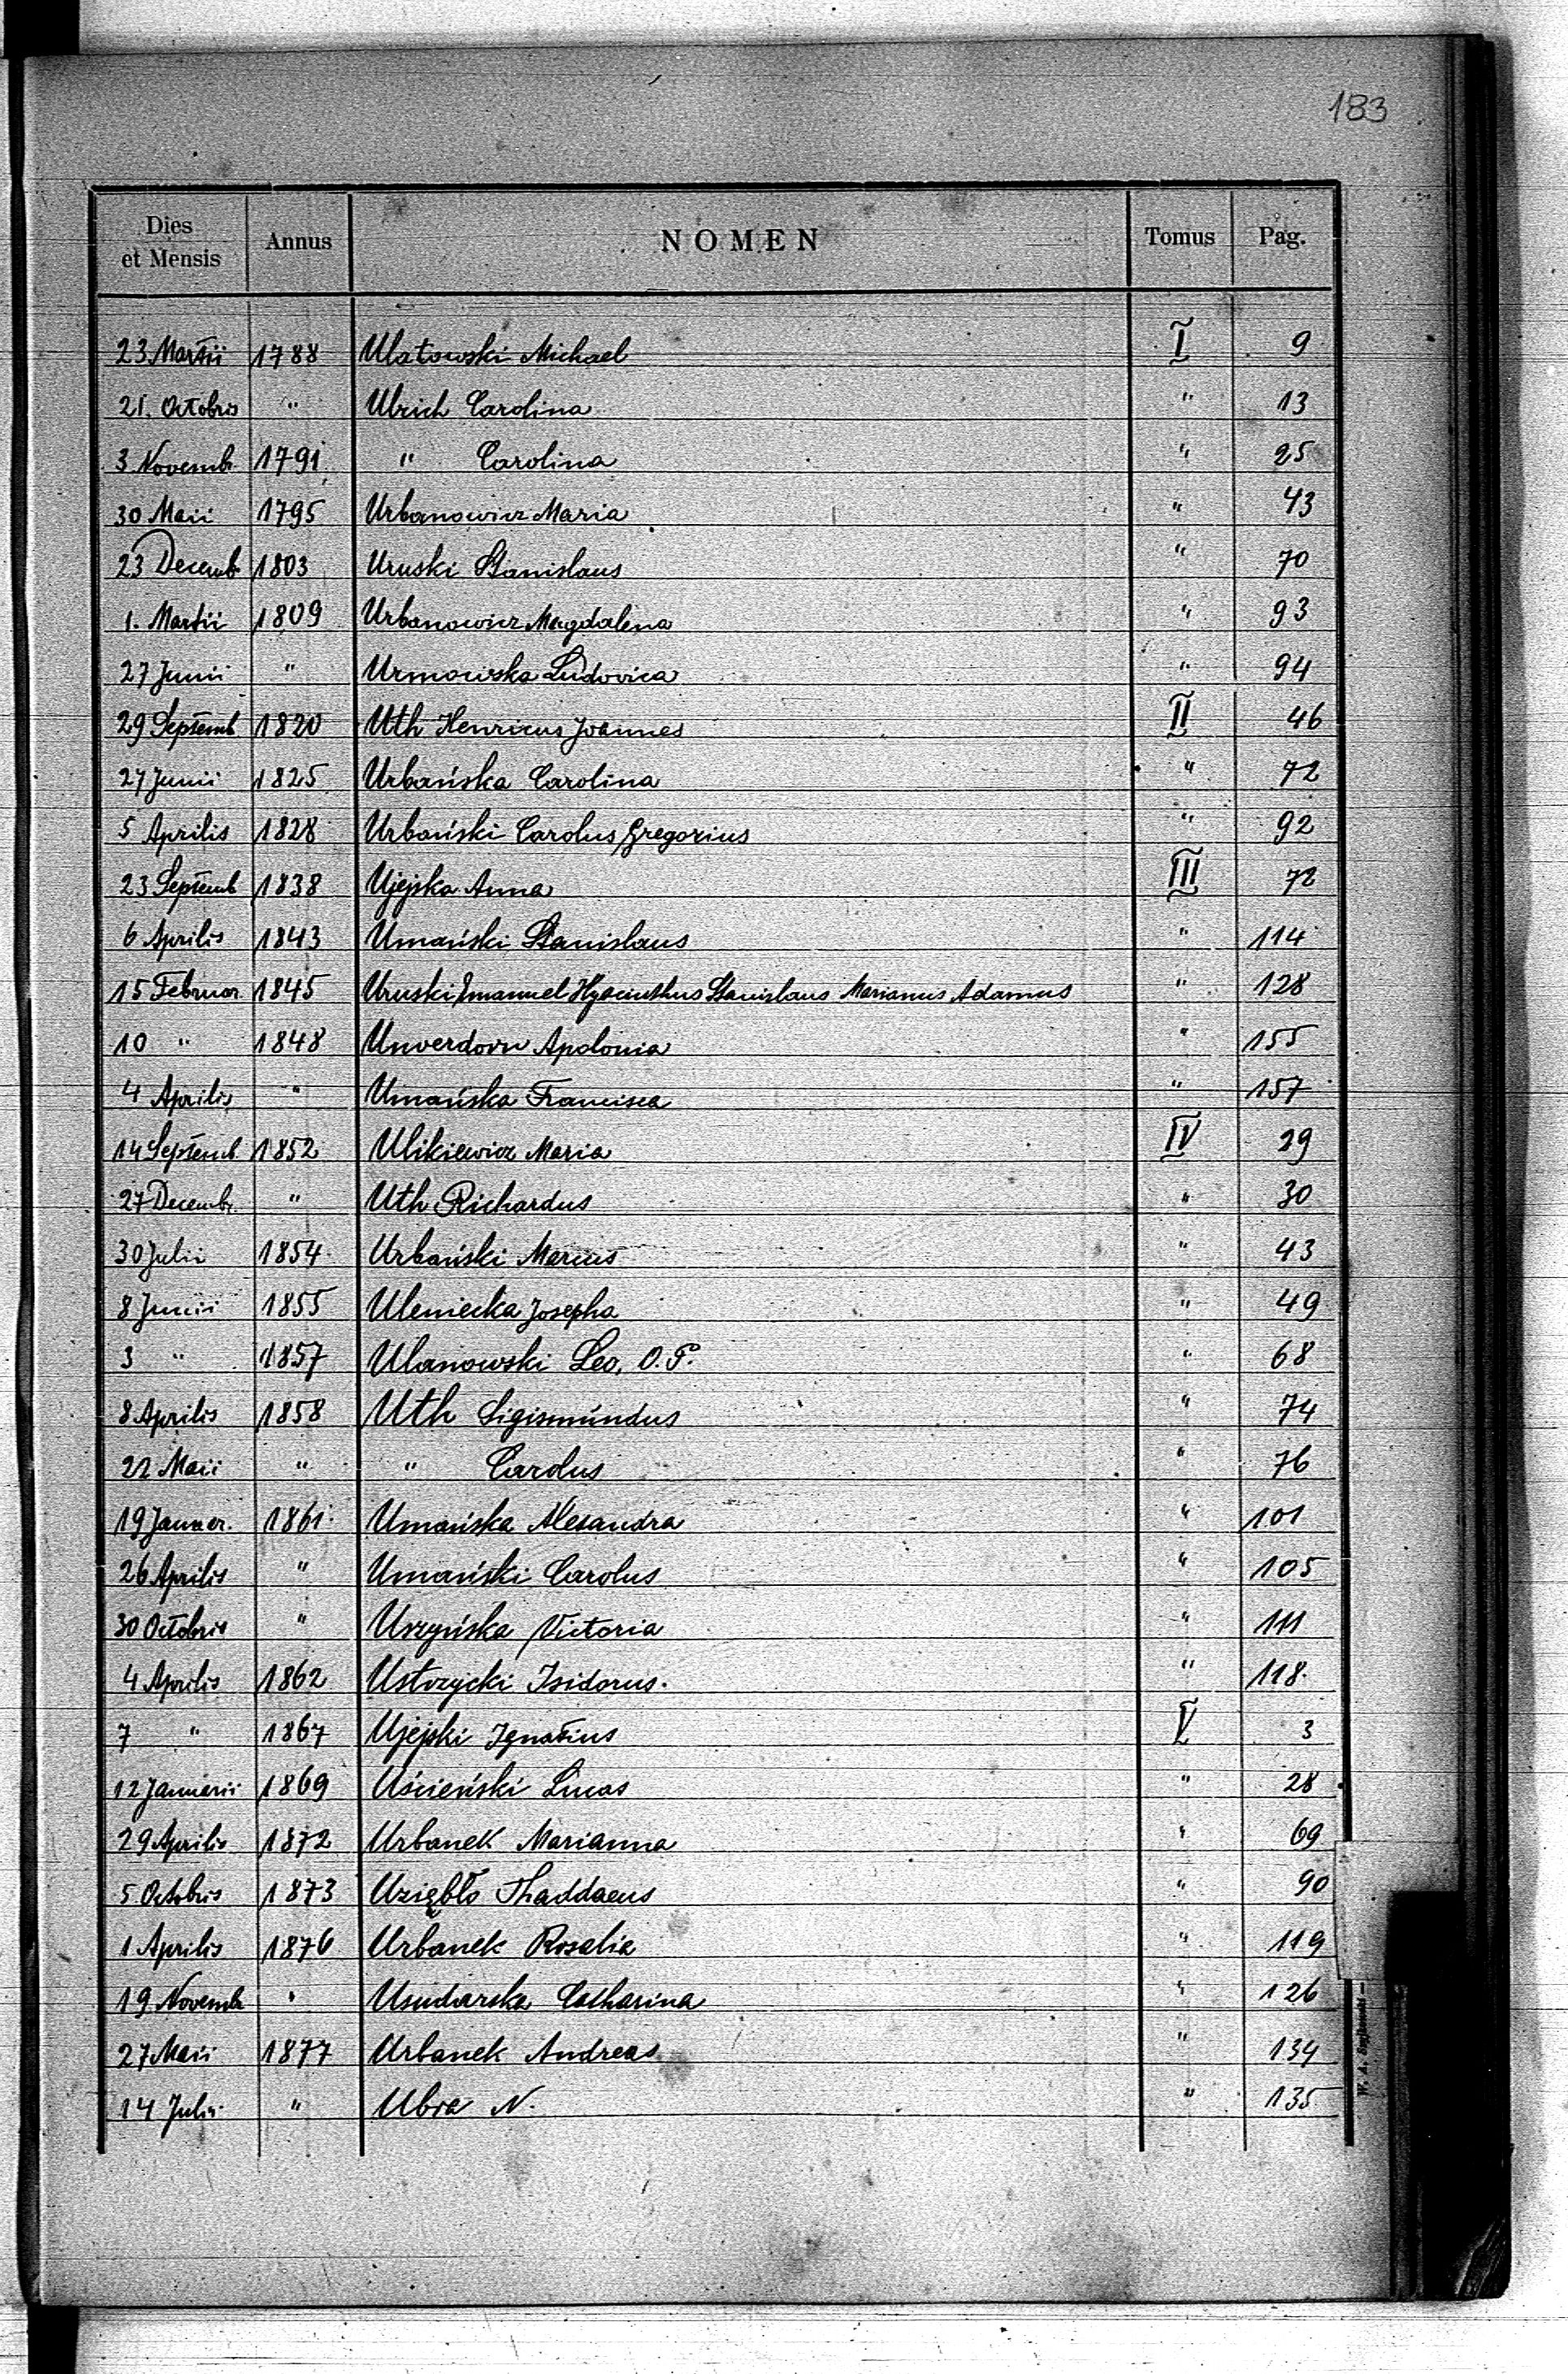 183
Dies et Mensis Annus NOMEN Tomus Pag.
23 Martii 1788 Ulatowski Michael I 9
21. Octobris " Ulrich Carolina " 13
3 Novemb. 1791 " Carolina " 25
30 Maii 1795 Urbanowicz Maria " 43
23 Decemb 1803 Uruski Stanislaus " 70
1. Martii 1809 Urbanowicz Magdalena " 93
27 Junii " Urmowska Ludovica " 94
29 Septemb 1820 Uth Henricus Joannes II 46
27 Junii 1825 Urbańska Carolina " 72
5 Aprilis 1828 Urbański Carolus Gregorius " 92
23 Septemb 1838 Ujejska Anna III 72
6 Aprilis 1843 Umański Stanislaus " 114
15 Februar. 1845 Uruski Emanuel Hyacinthus Stanislaus Marianus Adamus " 128
10 " 1848 Unverdorn Apolonia " 155
4 Aprilis " Umańska Francisca " 157
14 Septemb. 1852 Ulikiewicz Maria IV 29
27 Decemb. " Uth Richardus " 30
30 Julii 1854 Urbański Marcus " 43
8 Junii 1855 Uleniecka Josepha " 49
3 " 1857 Ulanowski Leo, O.P. " 68
8 Aprilis 1858 Uth Sigismundus " 74
22 Maii " " Carolus " 76
19 Januar. 1861 Umańska Alexandra " 101
26 Aprilis " Umański Carolus " 105
30 Octobris " Uszyńska Victoria " 111
4 Aprilis 1862 Ustrzycki Isidorus. " 118
7 " 1867 Ujejski Ignatius V 3
12 Januarii 1869 Uścieński Lucas " 28
29 Aprilis 1872 Urbanek Marianna " 69
5 Octobris 1873 Uziębło Thaddaeus " 90
1 Aprilis 1876 Urbanek Rosalia " 119
19 Novemb " Usudarska Catharina " 126
27 Maii 1877 Urbanek Andreas " 134
14 Julii " Ubra N. " 135